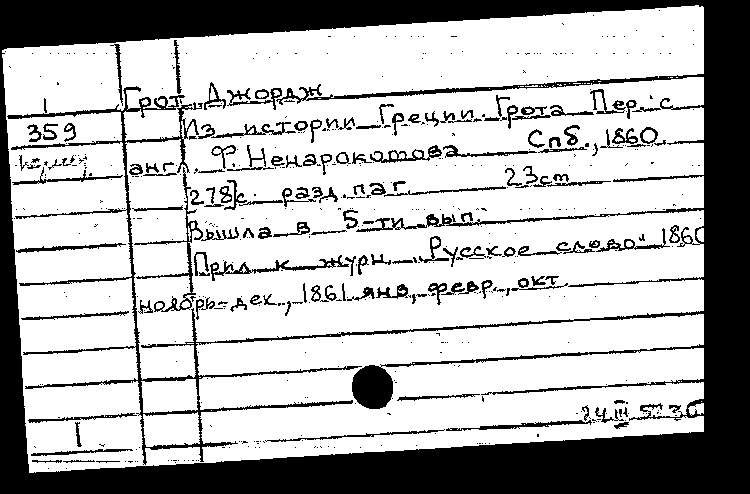 I
Грот, Джордж.
359
Из истории Греции Грота Пер. с
англ. Ф. Ненарокомова Спб., 1860.
[278]с. разд. паг. 23cm
Вышла в 5-ти вып.
Прил. к журн. „Русское слово" 1860
ноябрь-дек., 1861 янв, февр., окт.
I
24 III